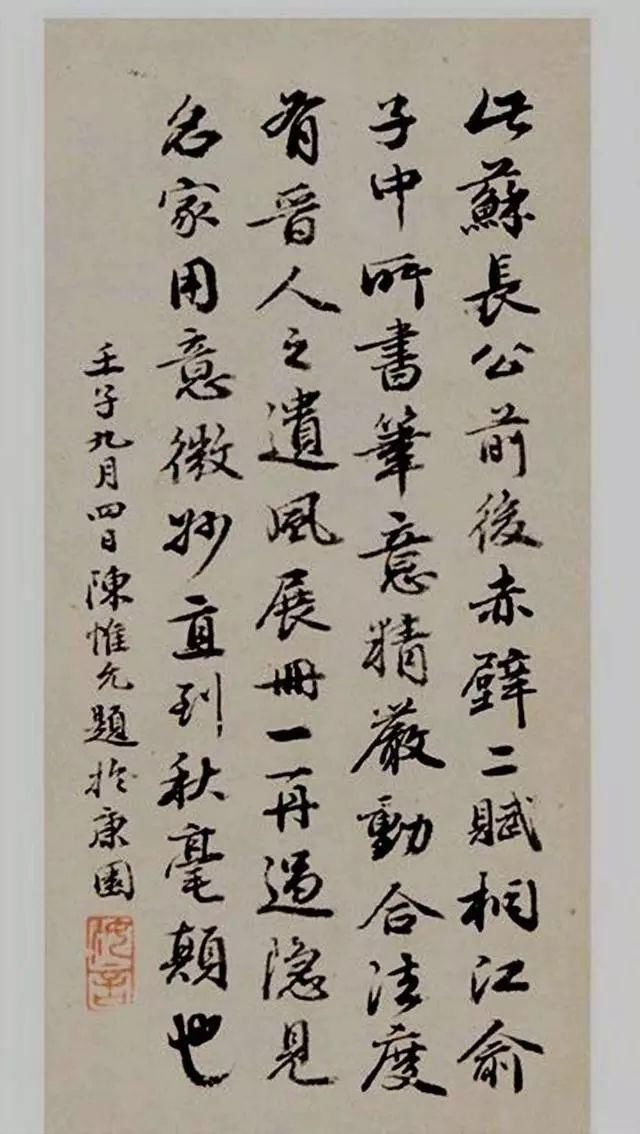 此蘇長公前後赤壁二賦桐江俞
子中所書筆意精嚴動合法度
有晋人之遺風展冊一再過隐見
名家用意微妙直到秋毫顛也
壬子九月四日陳惟允題於康園